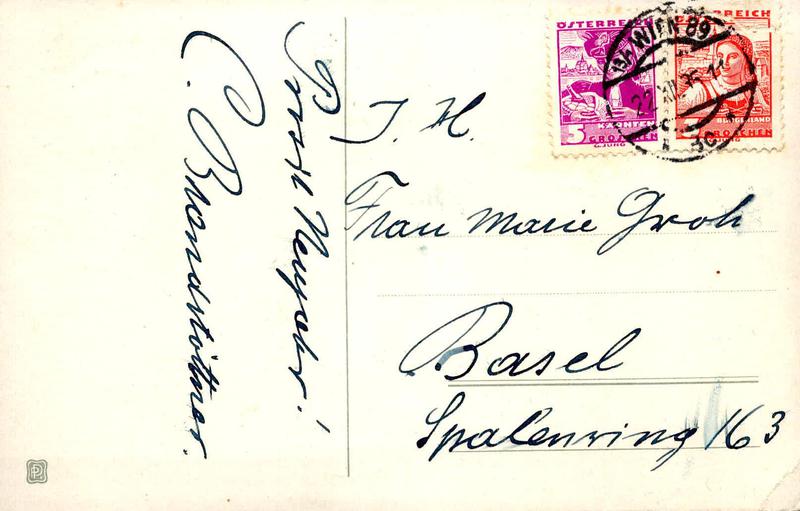 Prosit Neujahr!
C. Brandstöttner.
ÖSTERREICH
5
KÄRNTEN
GROSCHEN
G. JUNG
ÖSTERREICH
BURGENLAND
GROSCHEN
G. JUNG
WIEN 89
I. H.
Frau Marie Groh
Basel
Spalenring 163